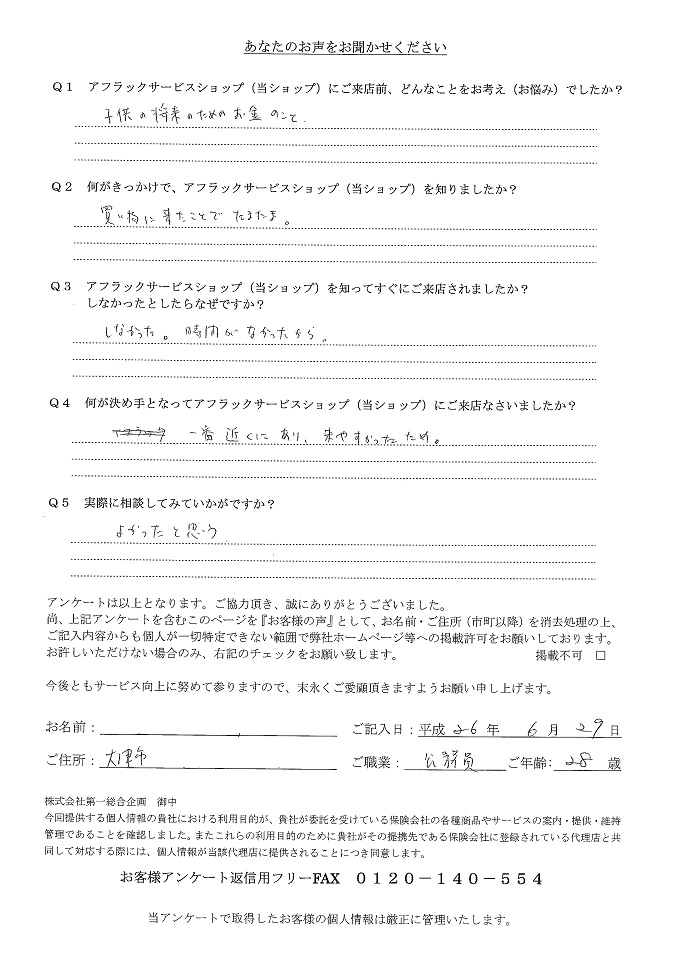 あなたのお声をお聞かせください
Q1 アフラックサービスショップ（当ショップ）にご来店前、どんなことをお考え（お悩み）でしたか？
子供の将来のためのお金のこと.
Q2 何がきっかけで、アフラックサービスショップ（当ショップ）を知りましたか？
買い物に来たことでたまたま。
Q3 アフラックサービスショップ（当ショップ）を知ってすぐにご来店されましたか？
しなかったとしたらなぜですか？
しなかった。時間がなかったから。
Q4 何が決め手となってアフラックサービスショップ（当ショップ）にご来店なさいましたか？
一番近くにあり、来やすかったため。
Q5 実際に相談してみていかがですか？
よかったと思う
アンケートは以上となります。ご協力頂き、誠にありがとうございました。
尚、上記アンケートを含むこのページを『お客様の声』として、お名前・ご住所（市町以降）を消去処理の上、
ご記入内容からも個人が一切特定できない範囲で弊社ホームページ等への掲載許可をお願いしております。
お許しいただけない場合のみ、右記のチェックをお願い致します。 掲載不可 □
今後ともサービス向上に努めて参りますので、末永くご愛顧頂きますようお願い申し上げます。
お名前： ご記入日：平成 26 年 6 月 29 日
ご住所： 大津市 ご職業： 公務員 ご年齢: 28 歳
株式会社第一総合企画 御中
今回提供する個人情報の貴社における利用目的が、貴社が委託を受けている保険会社の各種商品やサービスの案内・提供・維持
管理であることを確認しました。またこれらの利用目的のために貴社がその提携先である保険会社に登録されている代理店と共
同して対応する際には、個人情報が当該代理店に提供されることにつき同意します。
お客様アンケート返信用フリーFAX 0120－140－554
当アンケートで取得したお客様の個人情報は厳正に管理いたします。